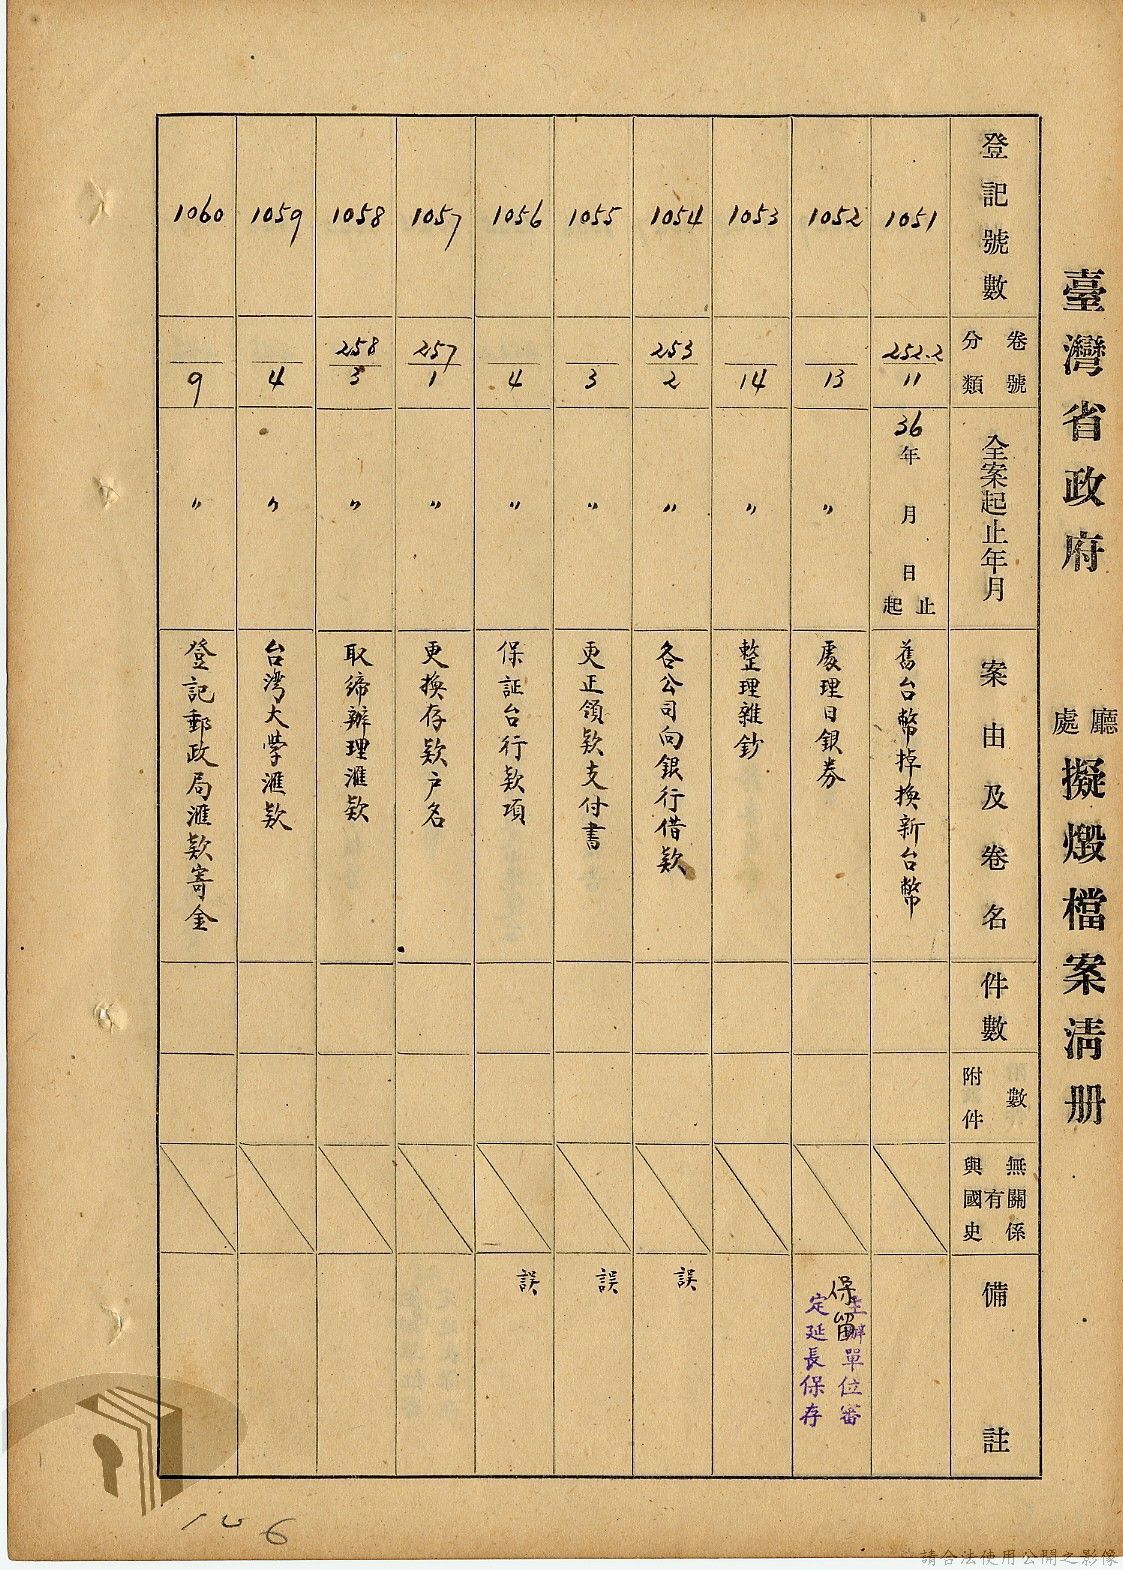 臺灣省政府廳處擬燬檔案清册
登記號數
分類卷號
全案起止年月
案由及卷名
件數
附件數
與國史有無關係
備註
1051
252.2
11
36年月日起止
舊台幣掉換新台幣
1052
13
〃
處理日銀券
保留
主辦單位審
定延長保存
1053
14
〃
整理雜鈔
1054
253
2
〃
各公司向銀行借款
誤
1055
3
〃
更正領款支付書
誤
1056
4
〃
保証台行款項
誤
1057
257
1
〃
更換存款户名
1058
258
3
〃
取締辦理滙款
1059
4
〃
台灣大學滙款
1060
9
〃
登記郵政局滙款寄金
106
請合法使用公開之影像